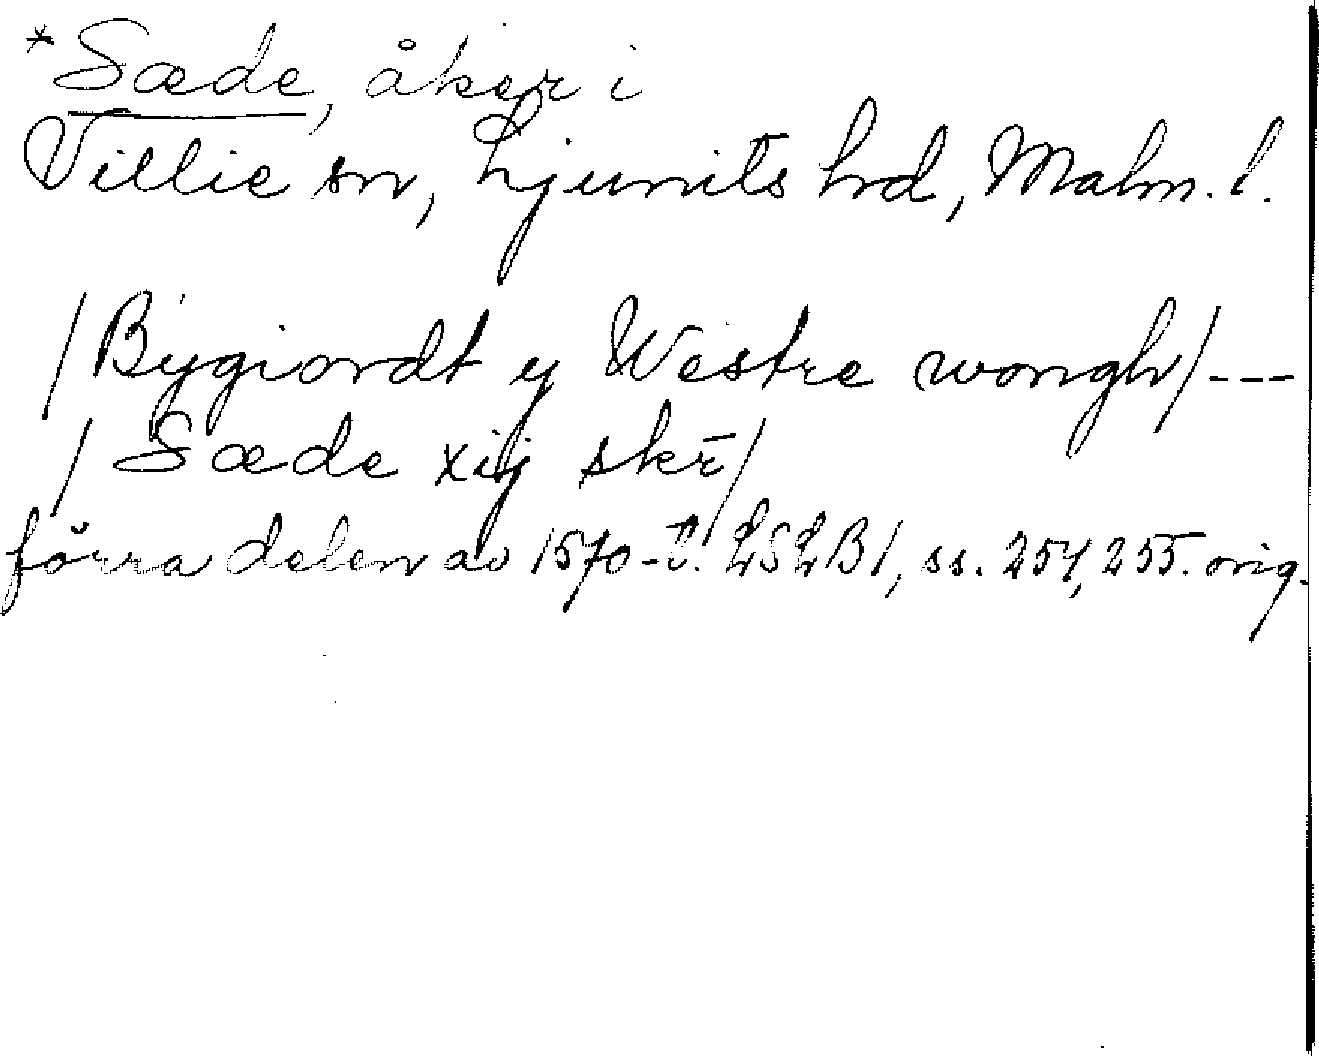 *Sæde, åker i
Villie sn, Ljunits hd, Malm. l.
/Bygiordt y Westre wongh/---
/ Sæde xij skr̄/
förra delen av 1570-t. LSLB1, ss. 254, 255. orig.